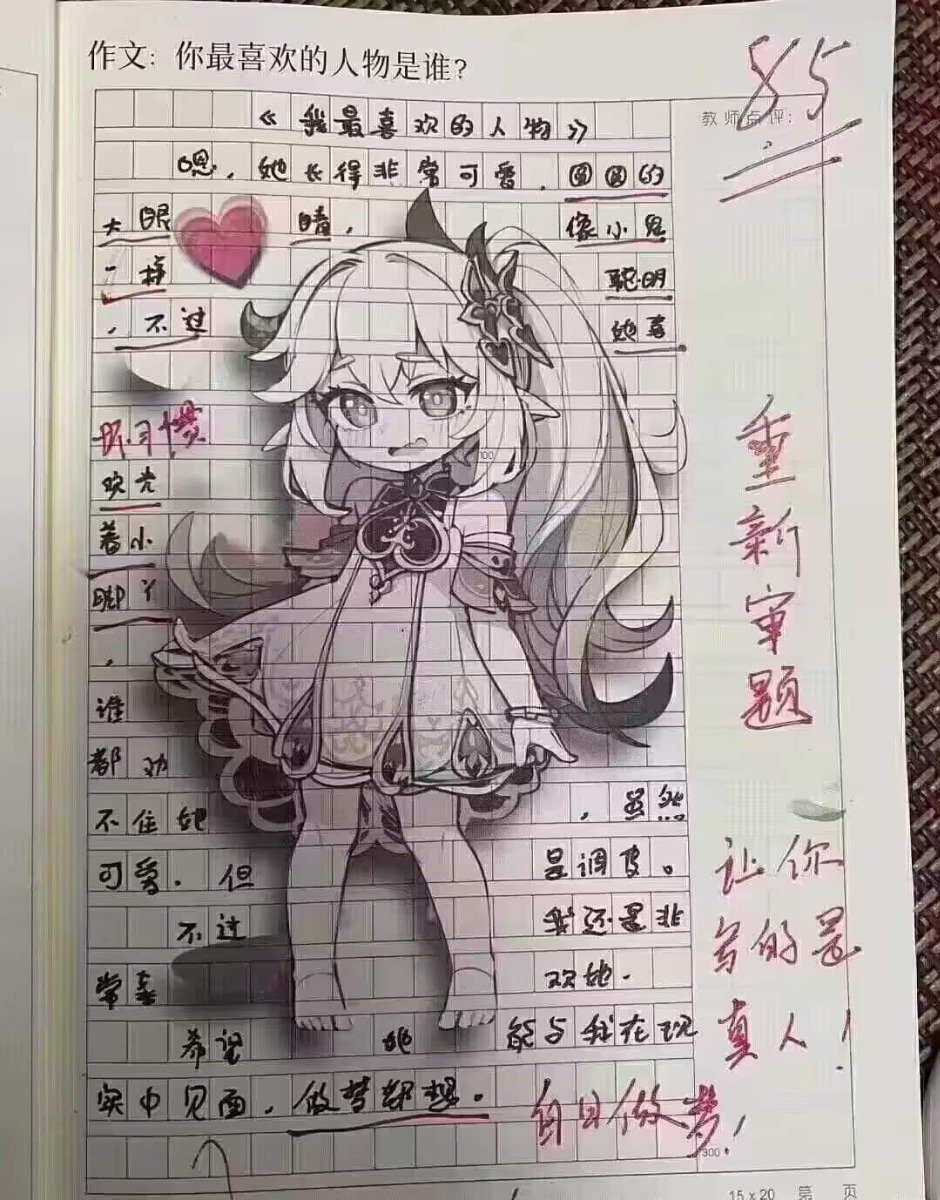 作文：你最喜欢的人物是谁？
85
教师点评：
《我最喜欢的人物》
嗯，她长得非常可爱，圆圆的
大眼 睛， 像小鬼
一样 聪明
，不过 她喜
坏习惯
欢光
着小
脚丫
，
谁
都劝
不住她 ，虽然
可爱，但 是调皮。
不过 我还是非
常喜 欢她。
希望 她 能与我在现
实中见面，做梦都想。
白日做梦！
重新审题
让你
写的是
真人！
100
300
15×20 第 页